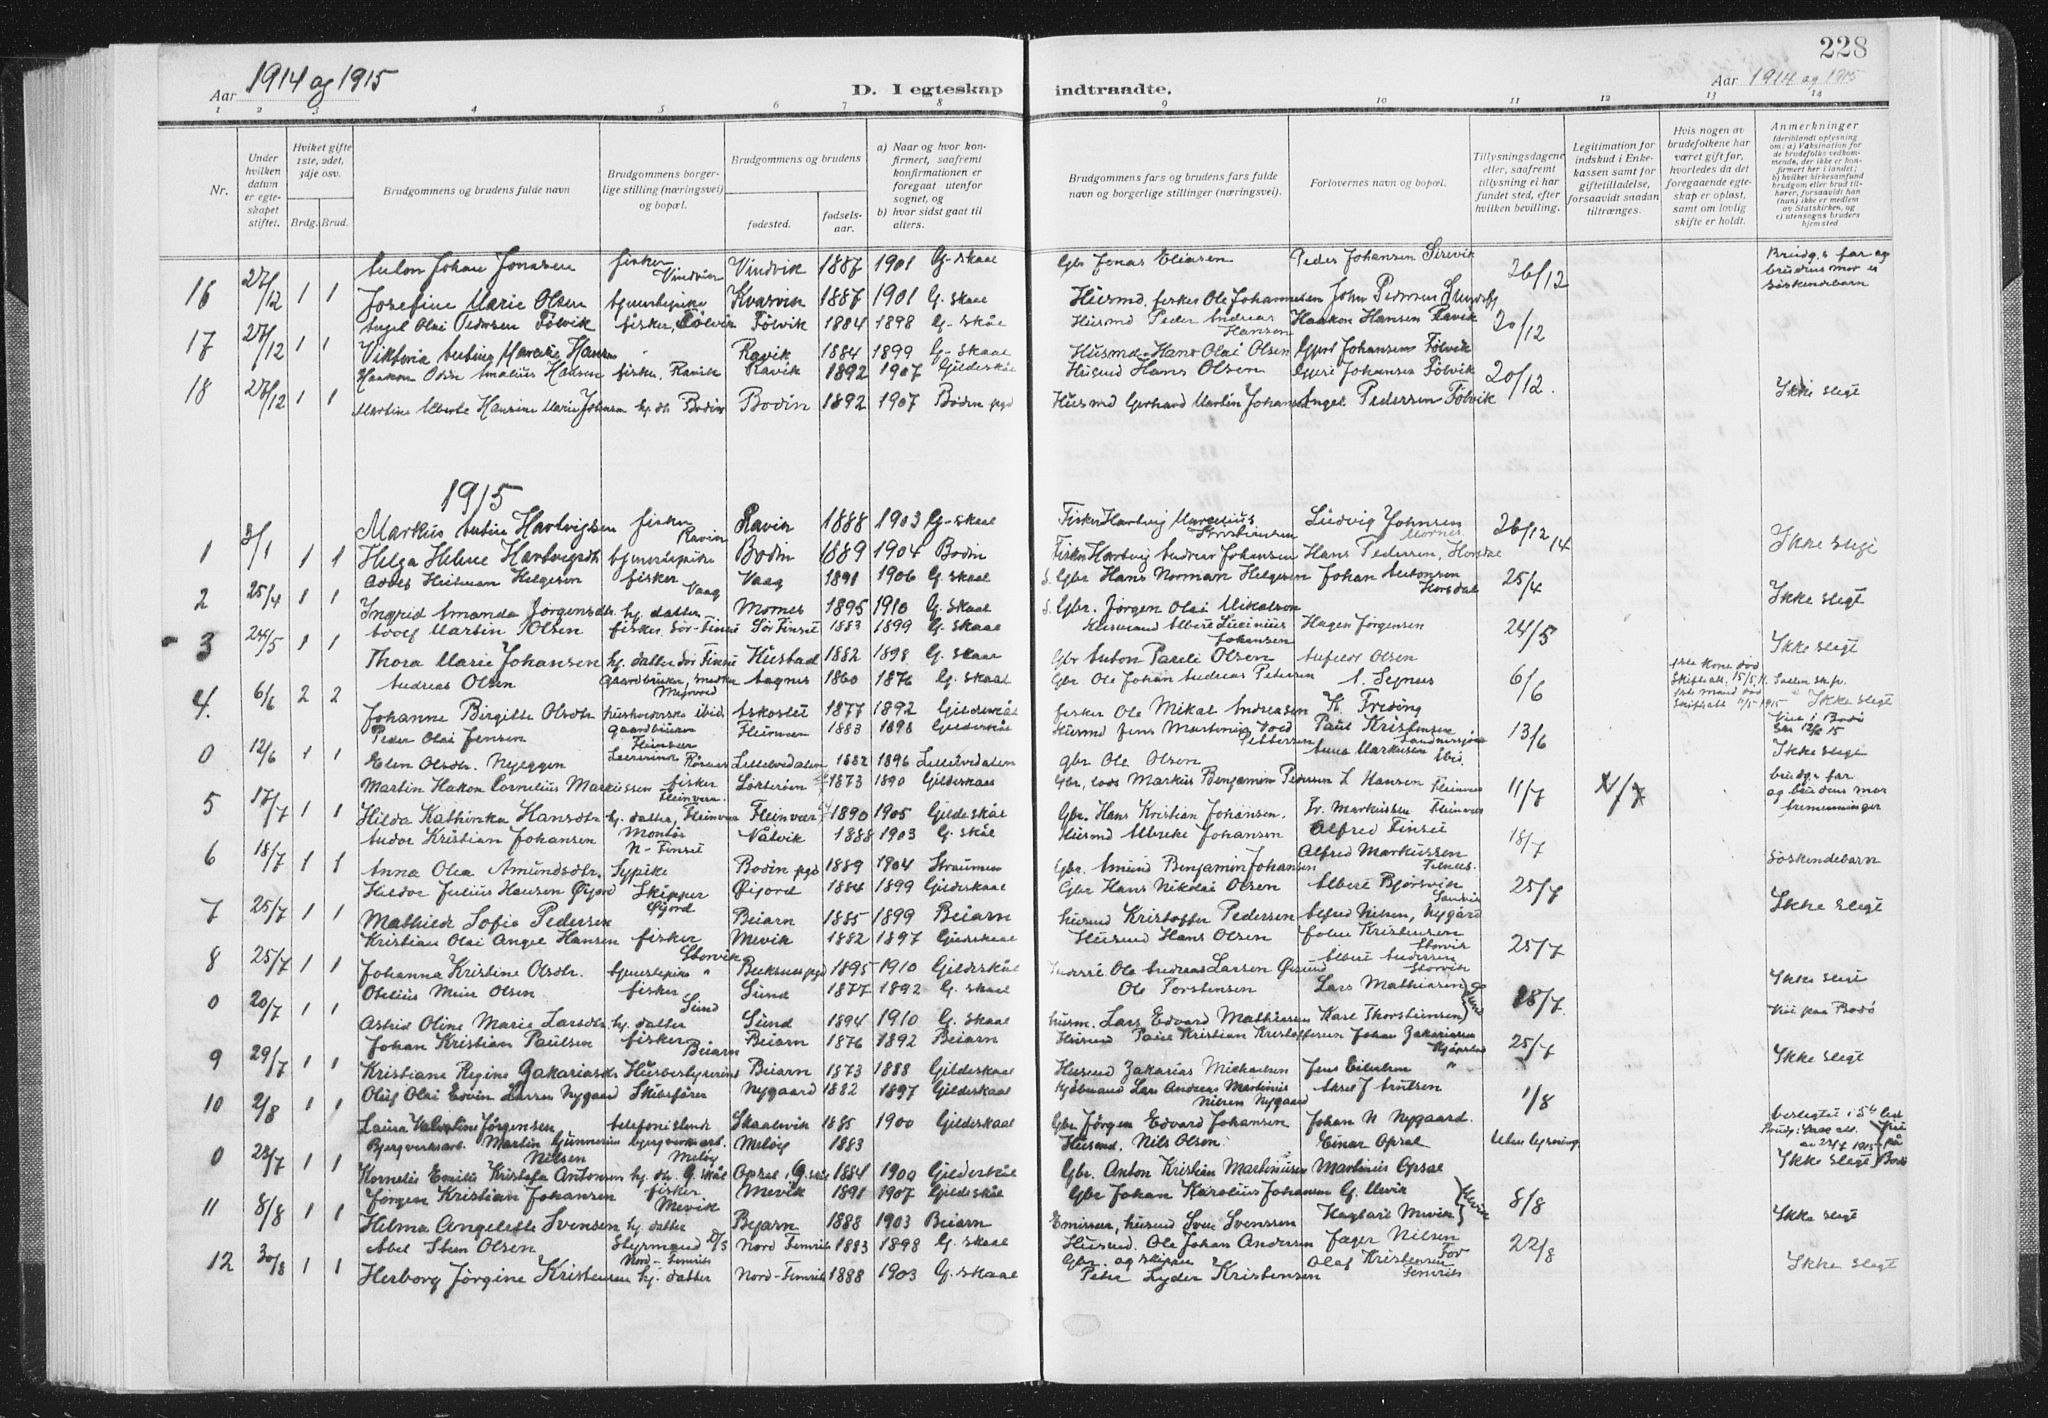 228
Aar 1914 og 1915
D. I egteskap indtraadte.
Aar 1914 og 1915
1 2 3 4 5 6 7 8 9 10 11 12 13 14
Nr.
Under hvilken datum er egteskapet stiftet.
Hviket gifte 1ste, 2det, 3dje osv.
Brdg. Brud.
Brudgommens og brudens fulde navn
Brudgommens borgerlige stilling (næringsvei) og bopæl.
Brudgommens og brudens
fødested.
fødselsaar.
a) Naar og hvor konfirmert, saafremt konfirmationen er foregaat utenfor sognet, og
b) hvor sidst gaat til alters.
Brudgommens fars og brudens fars fulde navn og borgerlige stillinger (næringsvei).
Forlovernes navn og bopæl.
Tillysningsdagene eller, saafremt tillysning ei har fundet sted, efter hvilken bevilling.
Legitimation for indskud i Enkekassen samt for giftetilladelse, forsaavidt saadan tiltrænges.
Hvis nogen av brudefolkene har været gift før, hvorledes da det foregaaende egteskap er opløst, samt om lovlig skifte er holdt.
Anmerkninger
Anton Johan Jonasen fisker Vindvik Vindvik 1887 1901 G-skaal Gbr Jonas Eliasen Peder Johansen Brudg.s far og brudens mor er søskendebarn
16 27/12 1 1 Josefine Marie Olsen tjenestepike Kvarvik 1887 1901 G. skaal Husmd. fisker Ole Johannesen John Pedersen 26/12
Angel Olai Pedersen Følvik fisker, Følvik Følvik 1884 1898 G-skål Husmd Peder Andreas Hansen Haakon Hansen Ravik 20/12
17 27/12 1 1 Viktoria Marie Hansen Ravik 1884 1899 G-skaal Husmd. Hans Olai Olsen Gjert Johansen Følvik
Haakon Odin Amalius Hansen fisker, Ravik Ravik 1892 1907 Gildeskål Husmd Hans Olsen Gjert Johansen Følvik 20/12.
18 27/12 1 1 Martine Alberte Hansine Marie Johansen hj. dtr Bodin Bodin 1892 1907 Bodin pgd Husmd Gerhard Martin Johansen Angel Pedersen Følvik Ikke slegt
1915
Markus Hartvigsen fisker Ravik Ravik 1888 1903 G-skaal Fisker Hartvig Marcelius Kristiansen Ludvig Johnsen Mornes 26/12 14
1 3/1 1 1 Helga Helene Hartvigsdtr tjenestepike Bodin 1889 1904 Bodin Fisker Hartvig Andreas Johansen Hans Pedersen, Ikke slegt
Heitman Helgesen fisker Vaag Vaag 1891 1906 G. skaal S. Gbr Hans Norman Helgesen Johan Antonsen Horsdal 25/4
2 25/4 1 1 Ingrid Amanda Jørgensdtr. hj. datter Mornes 1895 1910 G. skaal S. Gbr. Jørgen Olai Mikalsen Ikke slegt
Adolf Martin Olsen fisker Sør-Finset Sør Finset 1883 1899 G. skaal Husmand Albert Lucinius Johansen Hagen Jørgensen 24/5
3 24/5 1 1 Thora Marie Johansen hj. datter Sør Finset Kustad 1882 1898 G. skaal Gbr Anton Pareli Olsen Anfeldt Olsen Ikke slegt
Andreas Olsen Gaardbruker, smed Myrvold Aagnes 1860 1876 G. skaal Gbr Ole Johan Andreas Petersen 6/6
4. 6/6 2 2 Johanne Birgitte Olsdtr husholderske ibid. Askostet 1877 1892 Gildeskål fisker Ole Mikal Andreasen Ikke slegt
Peder Olai Jensen Gaardbruker Fleinvær Fleinvær 1883 1898 Gildeskål Husmd Jens Martinius Pettersen Paul Kristensen 13/6 Viet i Bodø den 12/6 15
0 12/6 1 1 Elen Olsdtr. Nyeggen Lærerinde Lillelvedalen 1882 1896 Lillelvedalen gbr Ole Olsen Anna Markusen ibid. Ikke slegt
Martin Hakon Cornelius Markussen fisker Fleinvær 1873 1890 Gildeskaal Gbr, lods Markus Benjamin Pedersen L Hansen Fleinvær 11/7 brudg. far og brudens mor tremenninger
5 17/7 1 1 Hilda Kathinka Hansdtr hj. datter, Fleinvær Fleinvær 1890 1905 Gildeskål Gbr. Hans Kristian Johansen. Fr. Markussen Fleinvær
Andor Kristian Johansen Montør N-Finset Nålvik 1888 1903 G. skål Husmd Albrikt Johansen Alfred Finset 18/7
6 18/7 1 1 Anna Olea Amundsdtr. Sypike Bodin pgd 1889 1904 Straumen Gbr. Amund Benjamin Johansen Alfred Markussen Søskendebarn
Haldor Julius Hansen Øijord Skipper Øijord Øijord 1884 1899 Gildeskaal Gbr Hans Nikolai Olsen Albert Bjørsvik 25/7
7 25/7 1 1 Mathilde Sofie Pedersen Beiarn 1885 1899 Beiarn husmd Kristoffer Pedersen Alfred Nilsen, Nygård Ikke slegt
Kristian Olai Angel Hansen fisker Storvik Mevik 1882 1897 Gildeskaal Husmd Hans Olsen John Kristensen Storvik 25/7
8 25/7 1 1 Johanna Kristine Olsdtr. tjenestepike " pgd 1895 1910 Gildeskål Ole Andreas Larsen Albert Andersen Storvik Ikke slegt
Otelius Meier Olsen fisker Sund Sund 1877 1892 G. skaal Ole Torstensen Lars Mathiasen 18/7
0 20/7 1 1 Astrid Oline Marie Larsdtr. hj. datter Sund 1894 1910 G. skaal husm. Lars Edvard Mathiasen Karl Thorstensen Viet paa Bodø
Johan Kristian Paulsen fisker Beiarn Beiarn 1876 1892 Beiarn Husmd Paul Kristian Kristoffersen Johan Zakariassen 25/7
9 29/7 1 1 Kristiane Regine Zakariasdtr Husbestyrerinde Beiarn 1873 1888 Gildeskaal Husmd Zakarias Michaelsen Jens Eilertsen " Ikke slegt
Oluf Olai Edvin Larsen Nygaard Skibsfører Nygaard 1882 1897 Gildeskaal Kjøbmand Lars Andreas Martinius Nilsen Nygaard Aksel J Antsen 1/8
10 2/8 1 1 Laura Valentine Jørgensen telefonistinde Skaalsvik 1885 1900 Gildeskaal Gbr Jørgen Edvard Johansen Johan N Nygaard. beslegtet i 5te led
Bjergverksarb. Martin Gunnerius Nilsen bjergverksarb. Meløy Meløy 1883 Husmd. Nils Olsen. Einar Opsal Uten lysning
0 22/7 1 1 Kornelie Emilie Kristofa Antonsen hj. dtr. G. skål Opsal, G. skål 1884 1900 Gildeskål Gbr. Anton Kristian Martinusen Martinius Opsal Ikke slegt
Jørgen Kristian Johansen fisker Mevik Mevik 1891 1907 Gildeskål Gbr Johan Karolius Johansen G. Mevik 8/8
11 8/8 1 1 Helma Angelette Svensen hj. datter Bejarn 1888 1903 Beiarn Emissær, husmd Sven Svenssen Hagbart Mevik Ikke slegt
Abel Steen Olsen Styrmand Nord-Femris Nord Femris 1883 1898 G. skaal Husmd. Ole Johan Andersen Jæger Nilsen For 22/8
12 30/8 1 1 Herborg Jørgine Kristensen hj. datter Nord-Femris 1888 1903 G. skaal Gbr. og skipper Peter Lyder Kristensen Olaf Kristensen Femris Ikke slegt